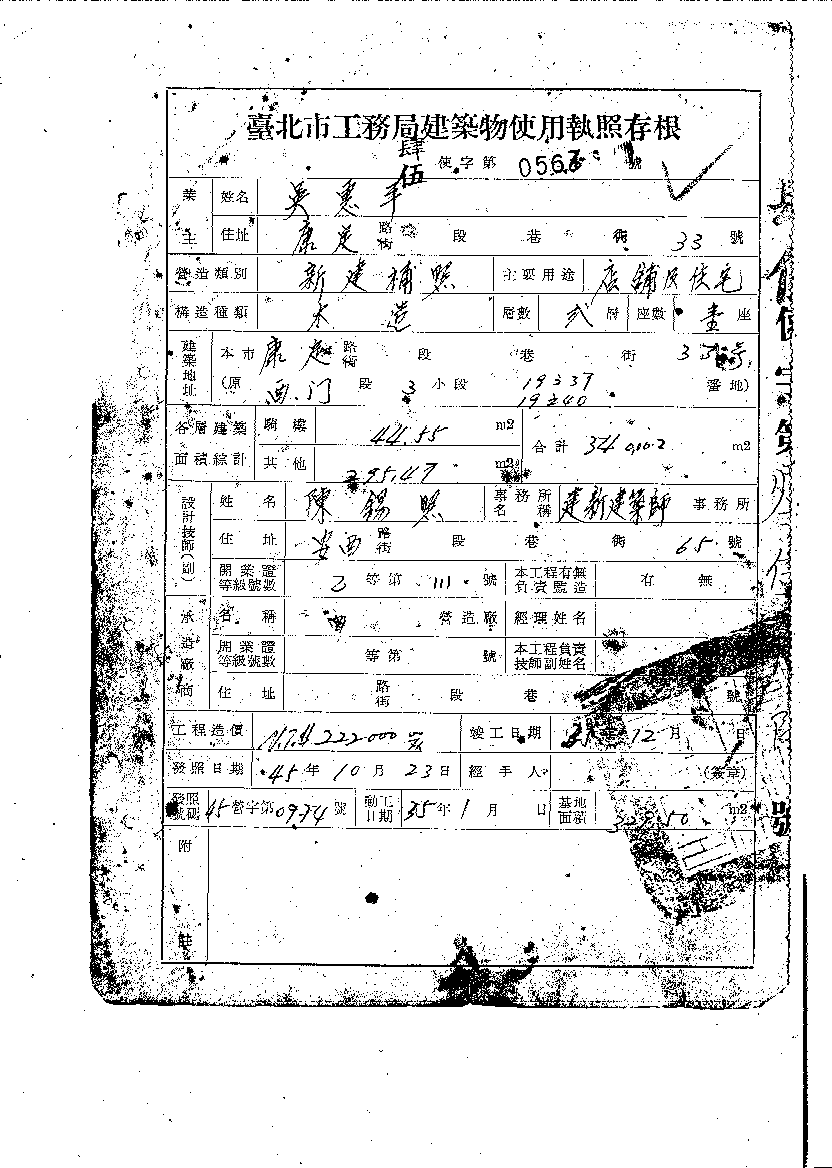 臺北市工務局建築物使用執照存根
肆伍 使字第 056 號
業主 姓名 吳惠平
住址 康定 路街 段 巷 街 33 號
營造類別 新建補照 主要用途 店舖及住宅
構造種類 木造 層數 弍 層 座數 壹 座
建築地址 本市 康定 路街 段 巷 街 33 號
(原 西門 段 3 小段 19337 19340 番地)
各層建築面積綜計 騎樓 44.55 m2 合計 340.02 m2
其他 295.47 m2
設計技師(副) 姓名 陳錫照 事務所名稱 建新建築師 事務所
住址 安西 路街 段 巷 街 65 號
開業證等級號數 乙 等第 111 號 本工程有無負責監造 有 無
承造廠商 名稱 營造廠 經理姓名
開業證等級號數 等第 號 本工程負責技師副姓名
住址 路街 段 巷 號
工程造價 N.T.$ 222000 元 竣工日期 年 12 月 日
發照日期 45 年 10 月 23 日 經手人 (簽章)
發照號碼 45 營字第 0974 號 動工日期 35 年 1 月 日 基地面積 m2
附註
號